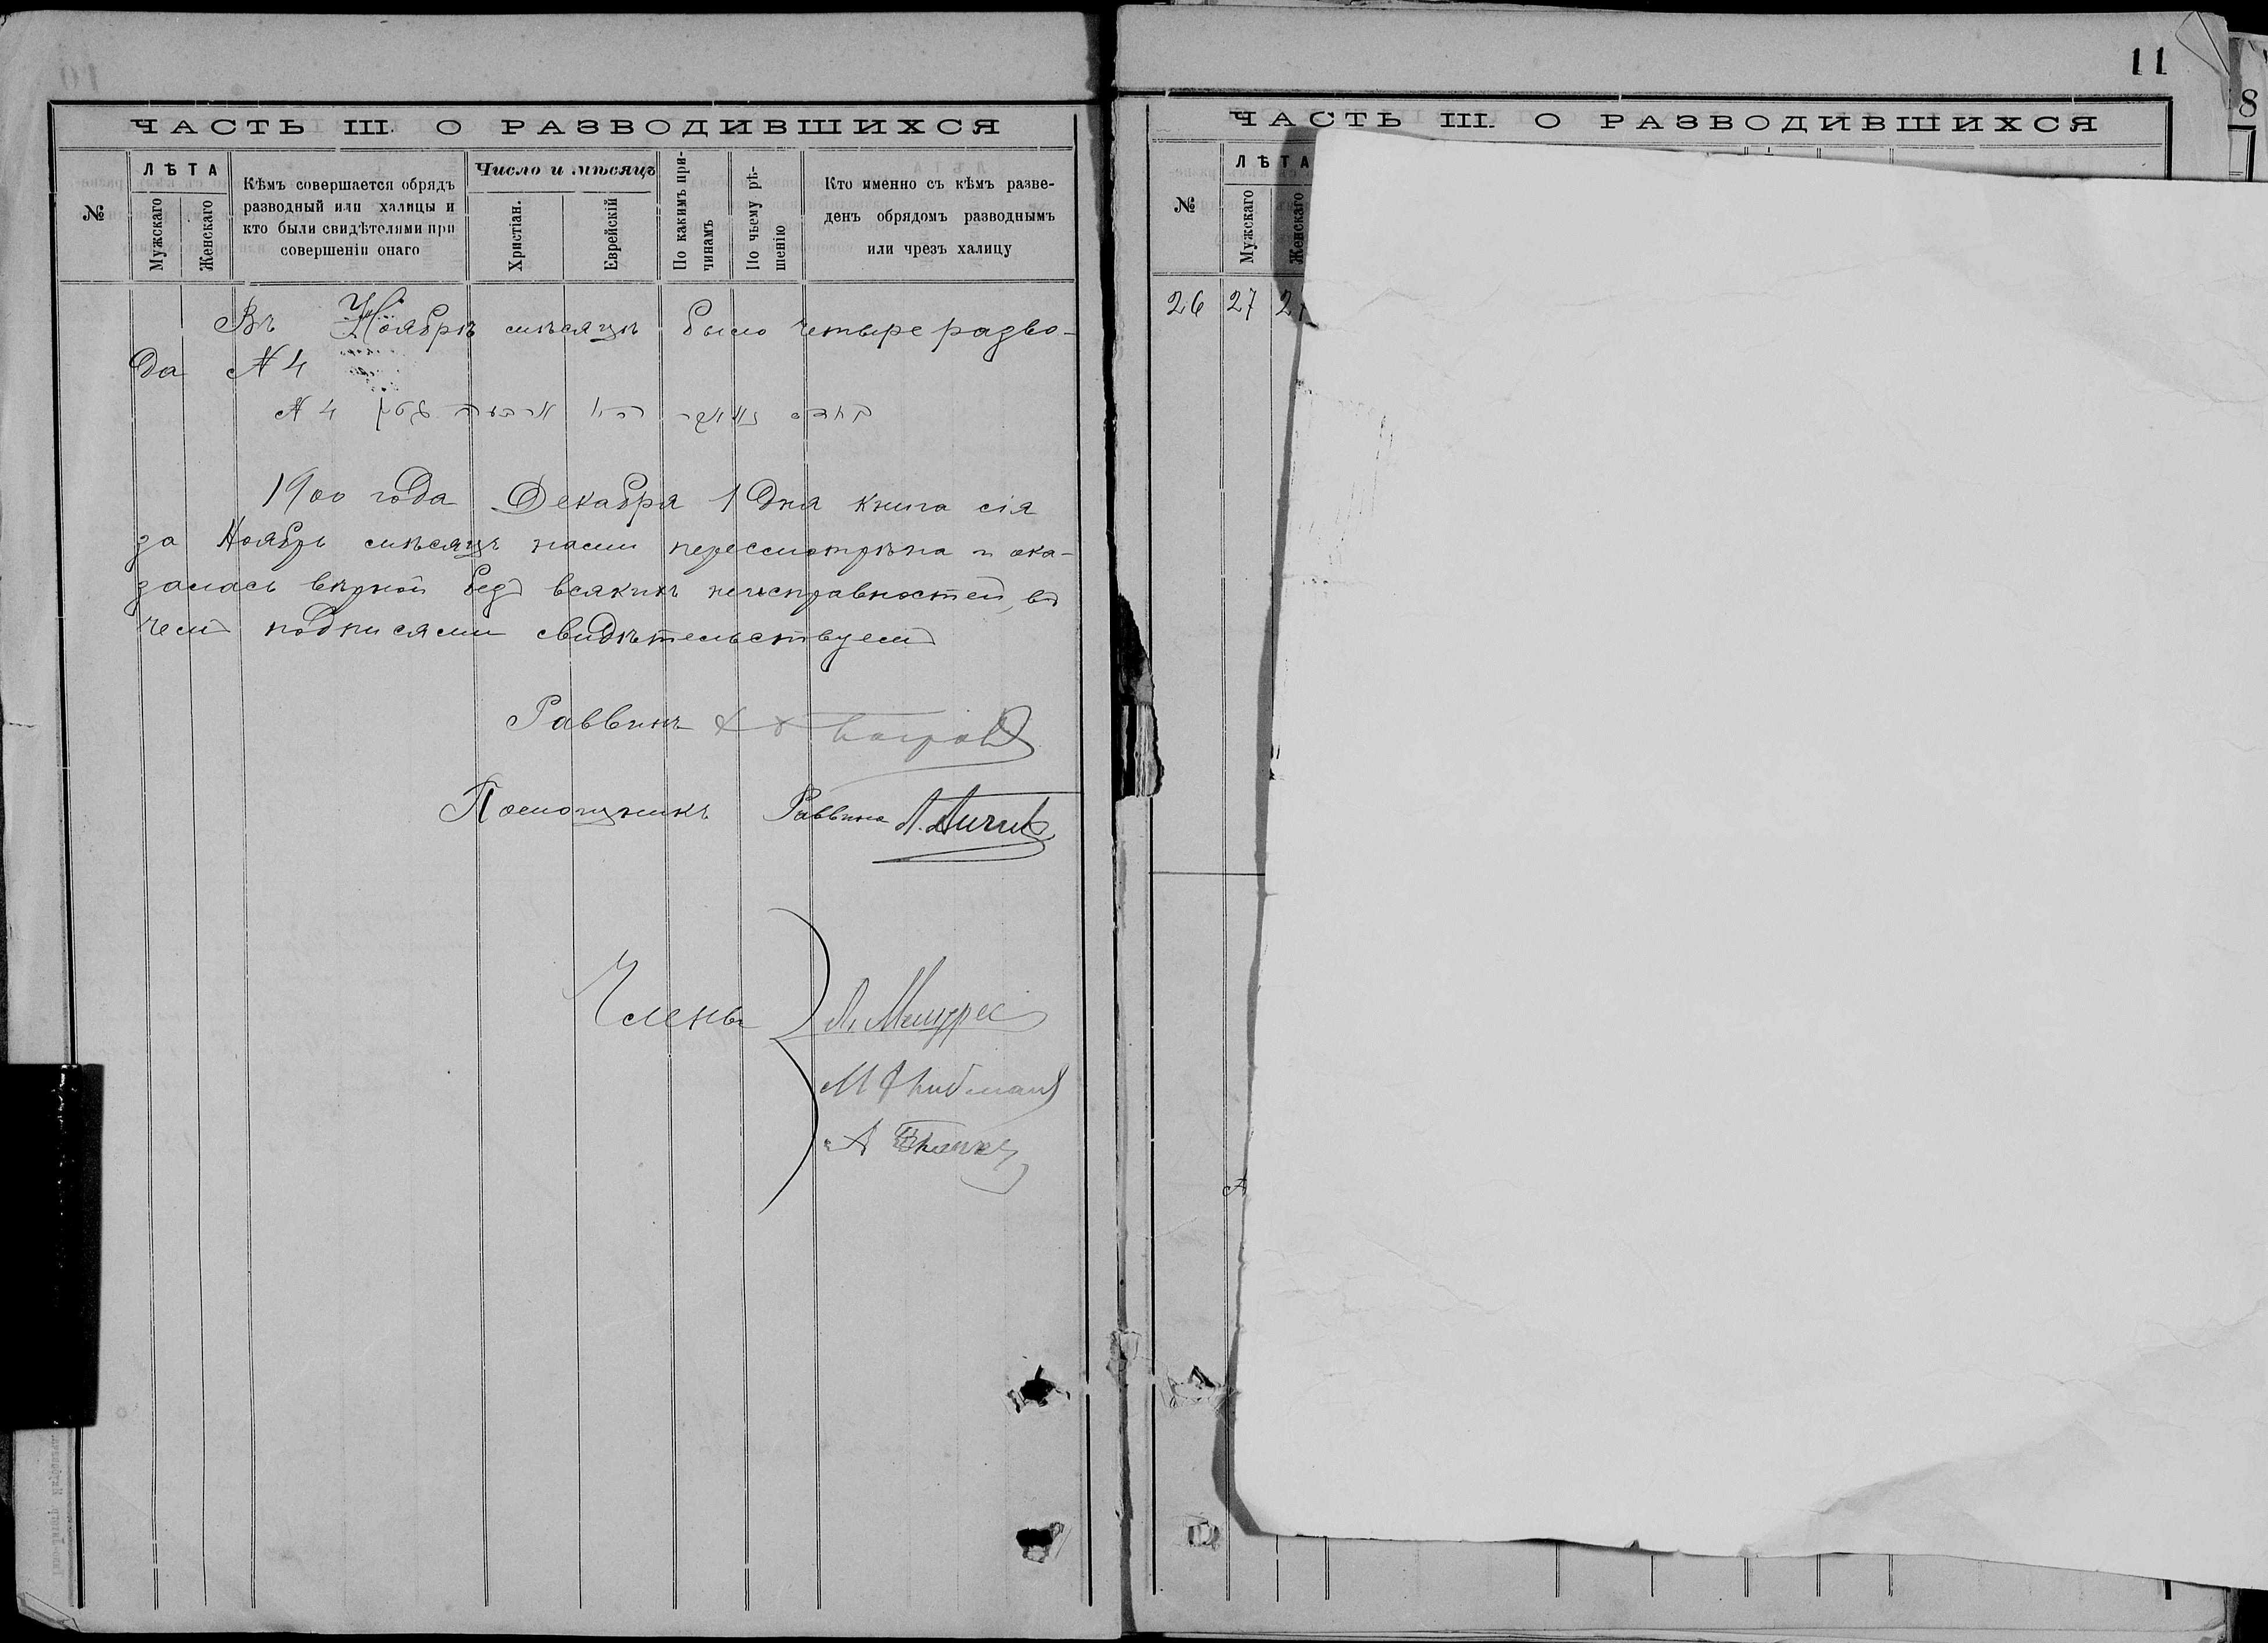 ЧАСТЬ III. О РАЗВОДИВШИХСЯ
№
ЛѢТА
Мужскаго
Женскаго
Кѣмъ совершается обрядъ
разводный или халицы и
кто были свидѣтелями при
совершеніи онаго
Число и мѣсяцъ
Христіан.
Еврейскій
По какимъ при-
чинамъ
По чьему рѣ-
шенію
Кто именно съ кѣмъ разве-
денъ обрядомъ разводнымъ
или чрезъ халицу
Въ Ноябрѣ мѣсяцѣ было четыре разво-
да № 4
№ 4
1900 года Декабря 1 дня книга сія
за Ноябрь мѣсяцъ нами пересмотрѣна и ока-
залась вѣрной безъ всякихъ неисправностей, въ
чемъ подписями свидѣтельствуемъ
Раввинъ
Помощникъ Раввина
Члены
11
8
ЧАСТЬ III. О РАЗВОДИВШИХСЯ
№
ЛѢТА
Мужскаго
Женскаго
26 27